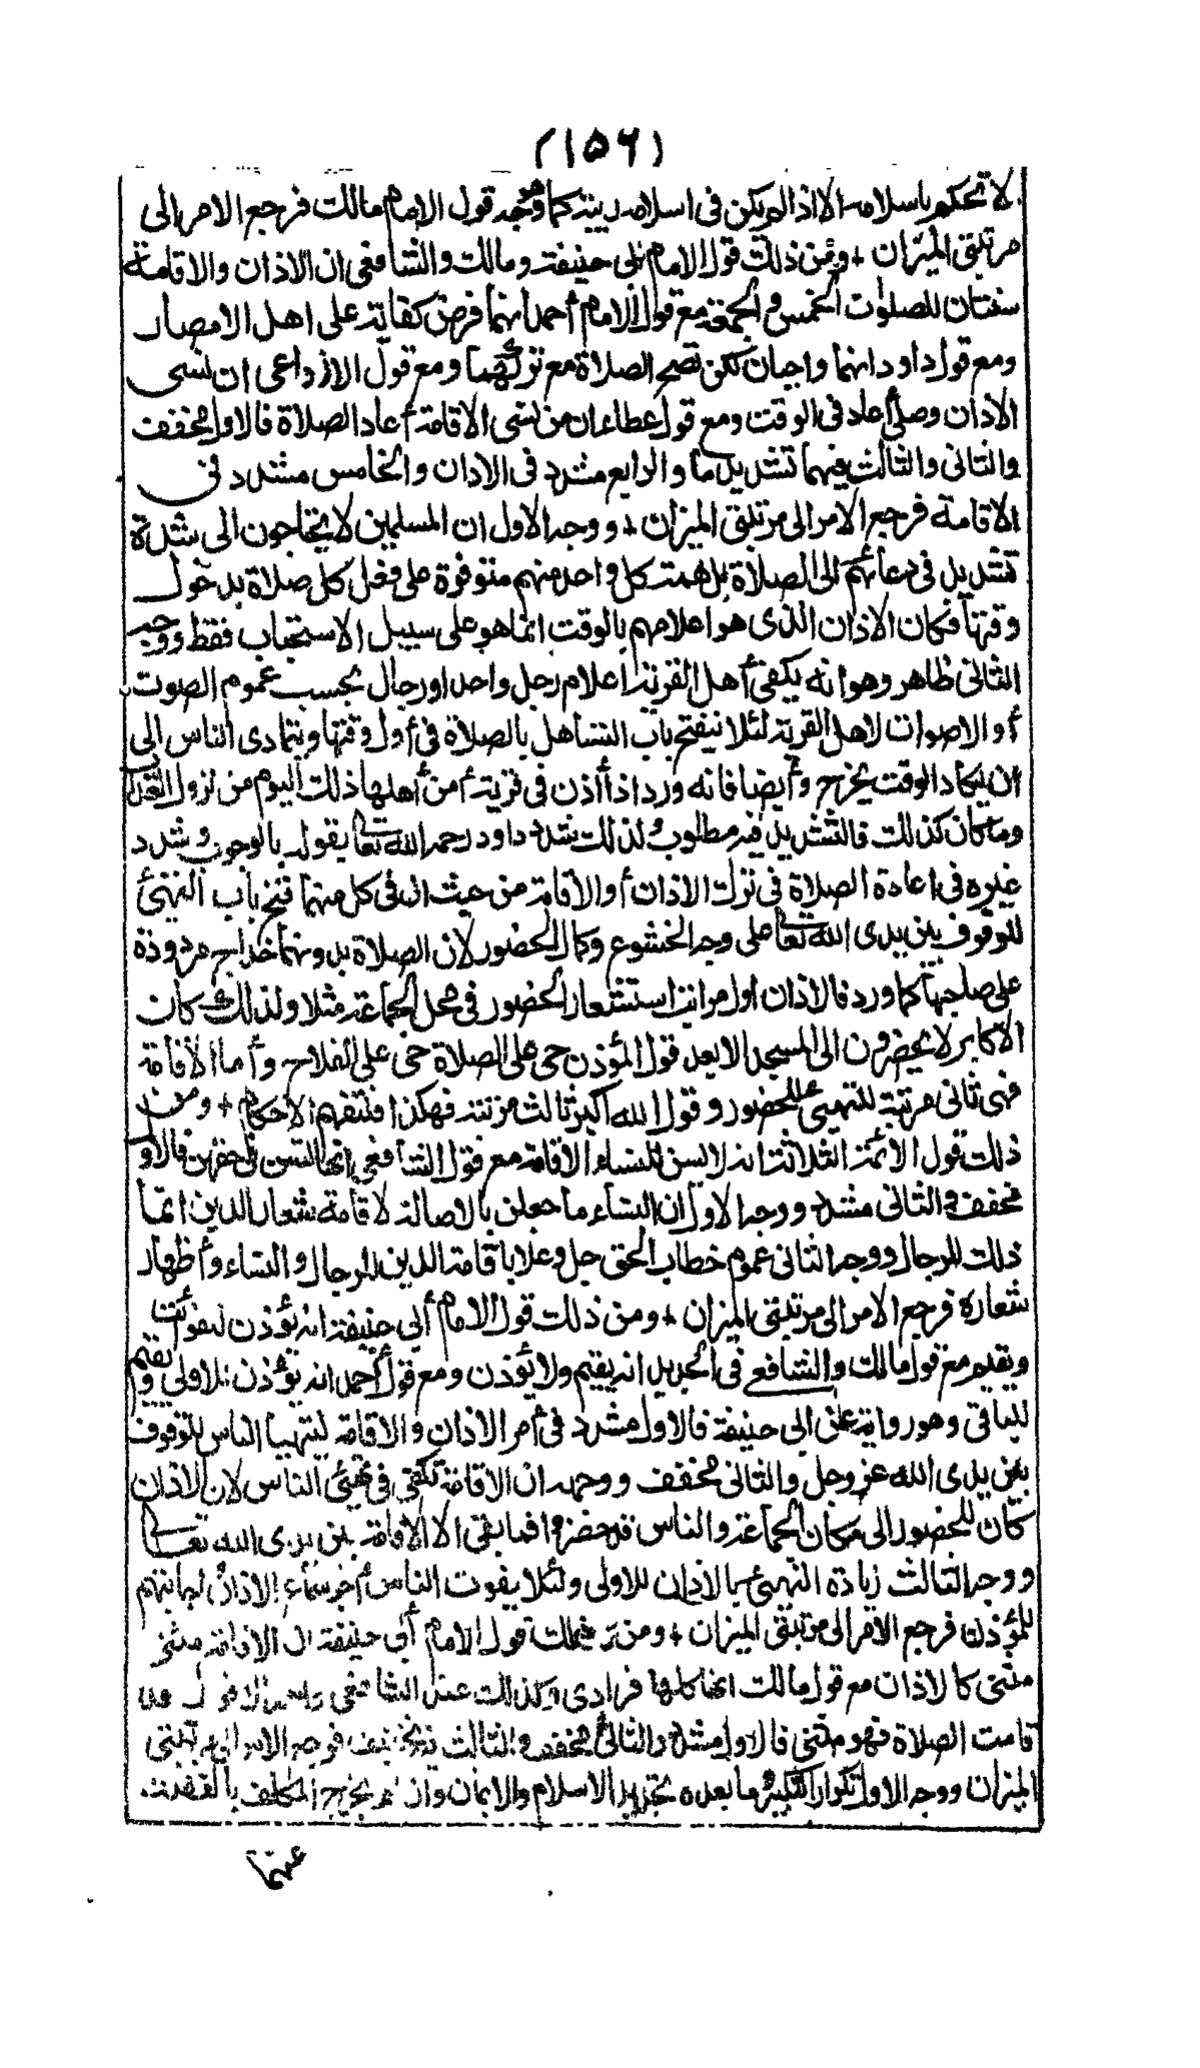 (١٥٦)
لا تحكم باسلامه الا اذا لم يكن في اسلامه ريبة كما وجد قول الامام مالك فرجع الامر الى
مرتبتي الميزان + ومن ذلك قول الامام ابي حنيفة ومالك والشافعي ان الاذان والاقامة
سنتان للصلوات الخمس والجمعة مع قول الامام أحمد انهما فرض كفاية على اهل الامصار
ومع قول داود انهما واجبان لكن تصح الصلاة مع تركهما ومع قول الاوزاعي ان نسي
الاذان وصلى أعاد في الوقت ومع قول عطاء ان من نسي الاقامة أعاد الصلاة فالاول مخفف
والثاني والثالث فيهما تشديد ما والرابع مشدد في الاذان والخامس مشدد في
الاقامة فرجع الامر الى مرتبتي الميزان + ووجه الاول ان المسلمين لا يحتاجون الى شدة
تشديد في دعائهم الى الصلاة بل همت كل واحد منهم متوفرة على فعل كل صلاة بدخول
وقتها فكان الاذان الذي هو اعلامهم بالوقت انما هو على سبيل الاستحباب فقط ووجه
الثاني ظاهر وهو انه يكفي أهل القرية اعلام رجل واحد اورجال بحسب عموم الصوت
أو الاصوات لاهل القرية لئلا ينفتح باب التساهل بالصلاة في أول وقتها ويتمادى الناس الى
ان يكاد الوقت يخرج وأيضا فانه ورد اذا أذن في قرية أمن أهلها ذلك اليوم من نزول العذاب
وما كان كذلك فالتشديد فيه مطلوب ولذلك شدد داود رحمه الله تعالى بقوله بالوجوب وشدد
غيره في اعادة الصلاة في ترك الاذان أو الاقامة من حيث ان في كل منهما فتح باب التهيئ
للوقوف بين يدى الله تعالى على وجه الخشوع وكمال الحضور لان الصلاة بدونهما خداج مردودة
على صاحبها كما ورد فالاذان اول مراتب استشعار الحضور في محل الجماعة مثلا ولذلك كان
الاكابر لا يحضرون الى المسجد الا بعد قول المؤذن حي على الصلاة حي على الفلاح وأما الاقامة
فهي ثاني مرتبة للتهيئ للحضور وقول الله اكبر ثالث مرتبة فهكذا فلتفهم الاحكام + ومن
ذلك قول الائمة الثلاثة انه لا يسن للنساء الاقامة مع قول الشافعي انها تسن في حقهن فالاول
مخفف والثاني مشدد ووجه الاول ان النساء ما جعلن بالاصالة لاقامة شعار الدين انما
ذلك للرجال ووجه الثاني عموم خطاب الحق جل وعلا باقامة الدين للرجال والنساء وأظهار
شعاره فرجع الامر الى مرتبتي الميزان + ومن ذلك قول الامام أبي حنيفة انه يؤذن للفوائت
ويقيم مع قول مالك والشافعي في الجديد انه يقيم ولا يؤذن ومع قول أحمد انه يؤذن للاولى ويقيم
للباقي وهو رواية عن ابي حنيفة فالاول مشدد في أمر الاذان والاقامة ليتهيأ الناس للوقوف
بين يدى الله عز وجل والثاني مخفف ووجهه ان الاقامة تكفي في تهيئ الناس لان الاذان
كان للحضور الى مكان الجماعة والناس قد حضروا فما بقي الا الاقامة بين يدى الله تعالى
ووجه الثالث زيادة التهيئ بالاذان للاولى ولئلا يفوت الناس أجر سماع الاذان لاجابتهم
للمؤذن فرجع الامر الى مرتبتي الميزان + ومن ذلك قول الامام أبي حنيفة ان الاقامة مثنى
مثنى كالاذان مع قول مالك انها كلها فرادى وكذلك عند الشافعي واحمد الا قوله قد
قامت الصلاة فهو مثنى فالاول مشدد والثاني مخفف والثالث فيه تخفيف فرجع الامر الى مرتبتي
الميزان ووجه الاول تكرار التكبير وما بعده تجديد الاسلام والايمان وان لم يخرج المكلف بالغفلة
عنهما